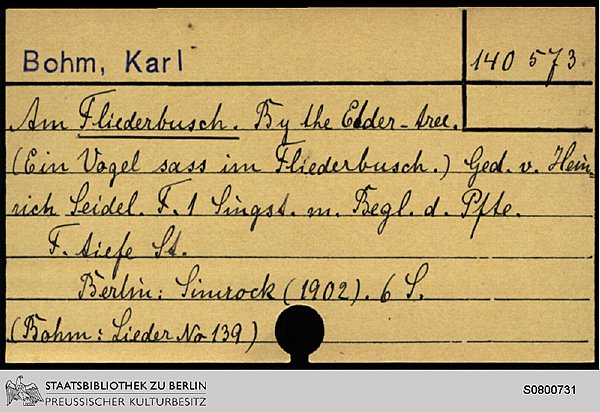 Bohm, Karl
140 573
Am Fliederbusch. By the Elder-tree.
(Ein Vogel sass im Fliederbusch.) Ged. v. Hein-
rich Seidel. F. 1 Singst. m. Begl. d. Pfte.
F. tiefe St.
Berlin: Simrock (1902). 6 S.
(Bohm: Lieder No 139)
STAATSBIBLIOTHEK ZU BERLIN
PREUSSISCHER KULTURBESITZ
S0800731